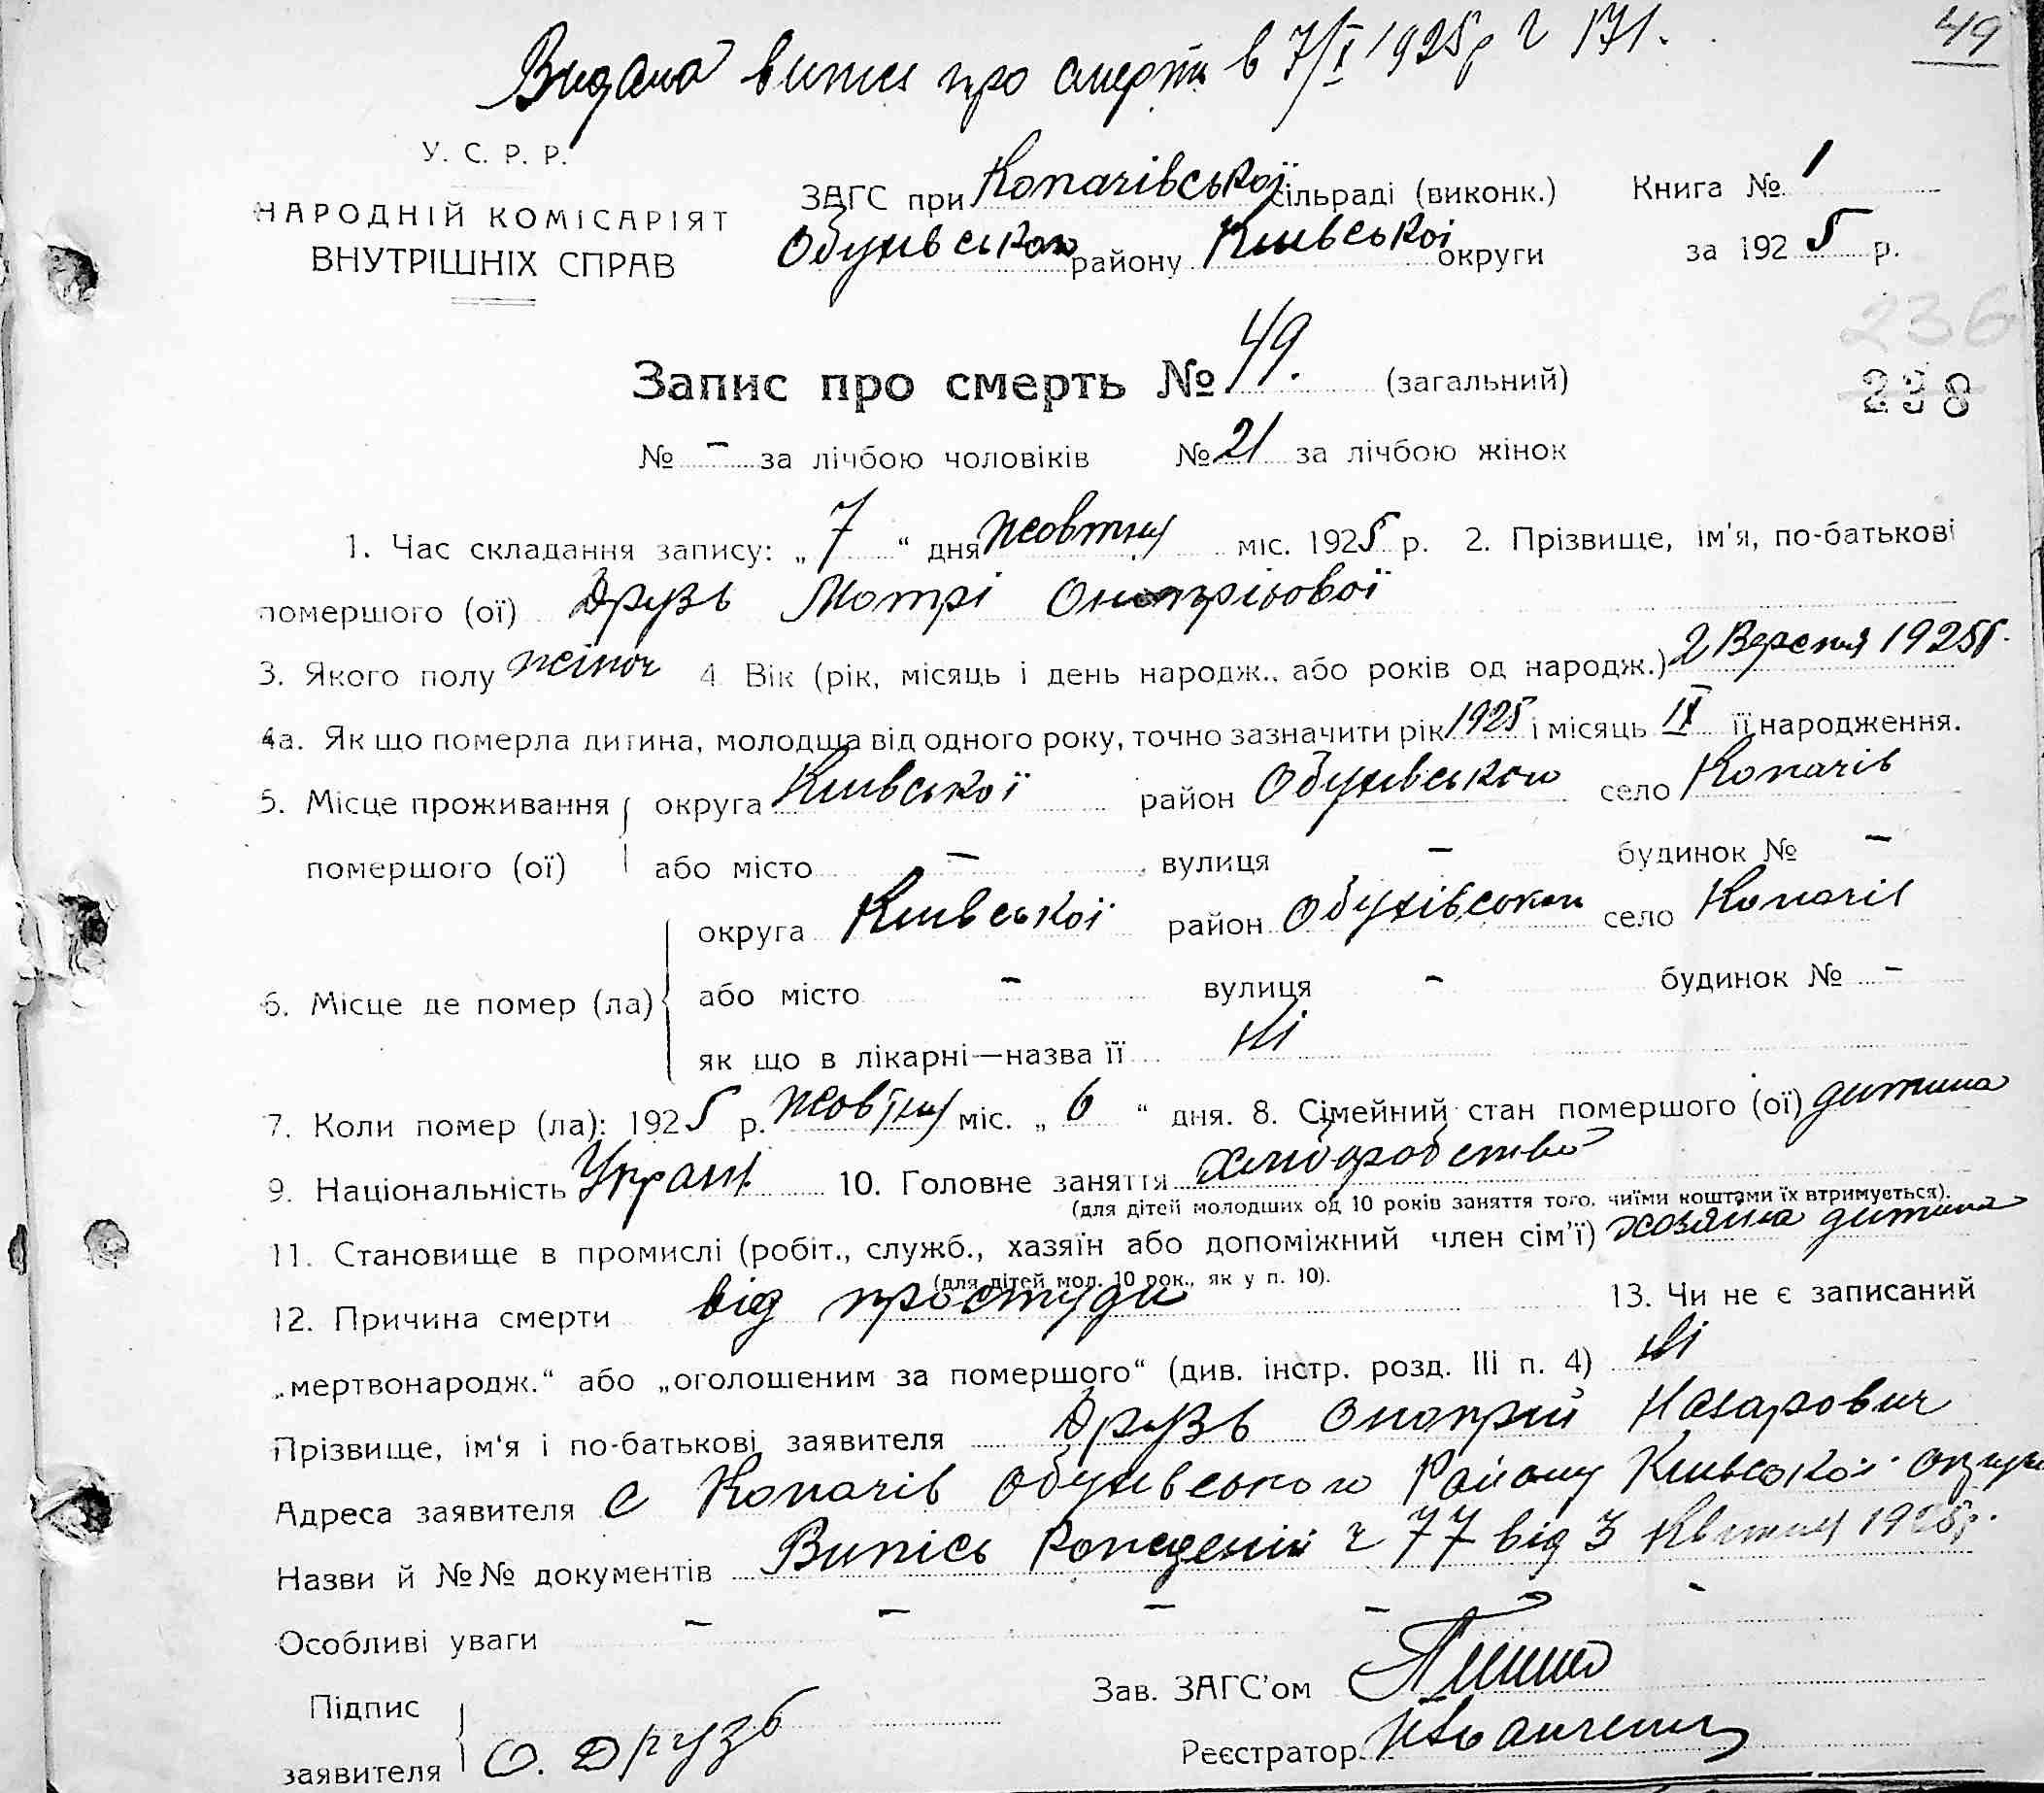 Видана випись про смерть в 7/X 1925р ч 171.
49
У. С. Р. Р.
НАРОДНІЙ КОМІСАРІЯТ
ВНУТРІШНІХ СПРАВ
ЗАГС при Копачівської сільраді (виконк.) Книга № 1
Обухівського району Київської округи за 1925 р.
236
238
Запис про смерть № 49. (загальний)
№ - за лічбою чоловіків № 21 за лічбою жінок
1. Час складання запису: „7“ дня жовтня міс. 1925 р. 2. Прізвище, ім'я, по-батькові
помершого (ої) Друзь Мотрі Онопріової
3. Якого полу жіноч 4. Вік (рік, місяць і день народж., або років од народж.) 2 Вересня 1925р.
4а. Як що померла дитина, молодща від одного року, точно зазначити рік 1925 і місяць IX її народження.
5. Місце проживання округа Київської район Обухівського село Копачів
помершого (ої) або місто - , вулиця - будинок № -
округа Київської район Обухівського село Копачів
6. Місце де помер (ла) або місто - вулиця - будинок № -
як що в лікарні—назва її ні
7. Коли помер (ла): 1925 р. жовтня міс. „6“ дня. 8. Сімейний стан помершого (ої) дитина
9. Національність Украин. 10. Головне заняття хліборобство
(для дітей молодших од 10 років заняття того, чиїми коштами їх втримується).
11. Становище в промислі (робіт., служб., хазяїн або допоміжний член сім'ї) хозяїна дитина
(для дітей мол. 10 рок., як у п. 10).
12. Причина смерти від простуди 13. Чи не є записаний
„мертвонародж.“ або „оголошеним за помершого“ (див. інстр. розд. III п. 4) ні
Прізвище, ім'я і по-батькові заявителя Друзь Оноприй Назарович
Адреса заявителя с Копачів Обухівського Району Київської округи
Назви й №№ документів Випісь Рожденій ч 77 від 3 1925р.
Особливі уваги - - - - -
Підпис
заявителя О. Друзь
Зав. ЗАГС'ом
Реєстратор Іванченко